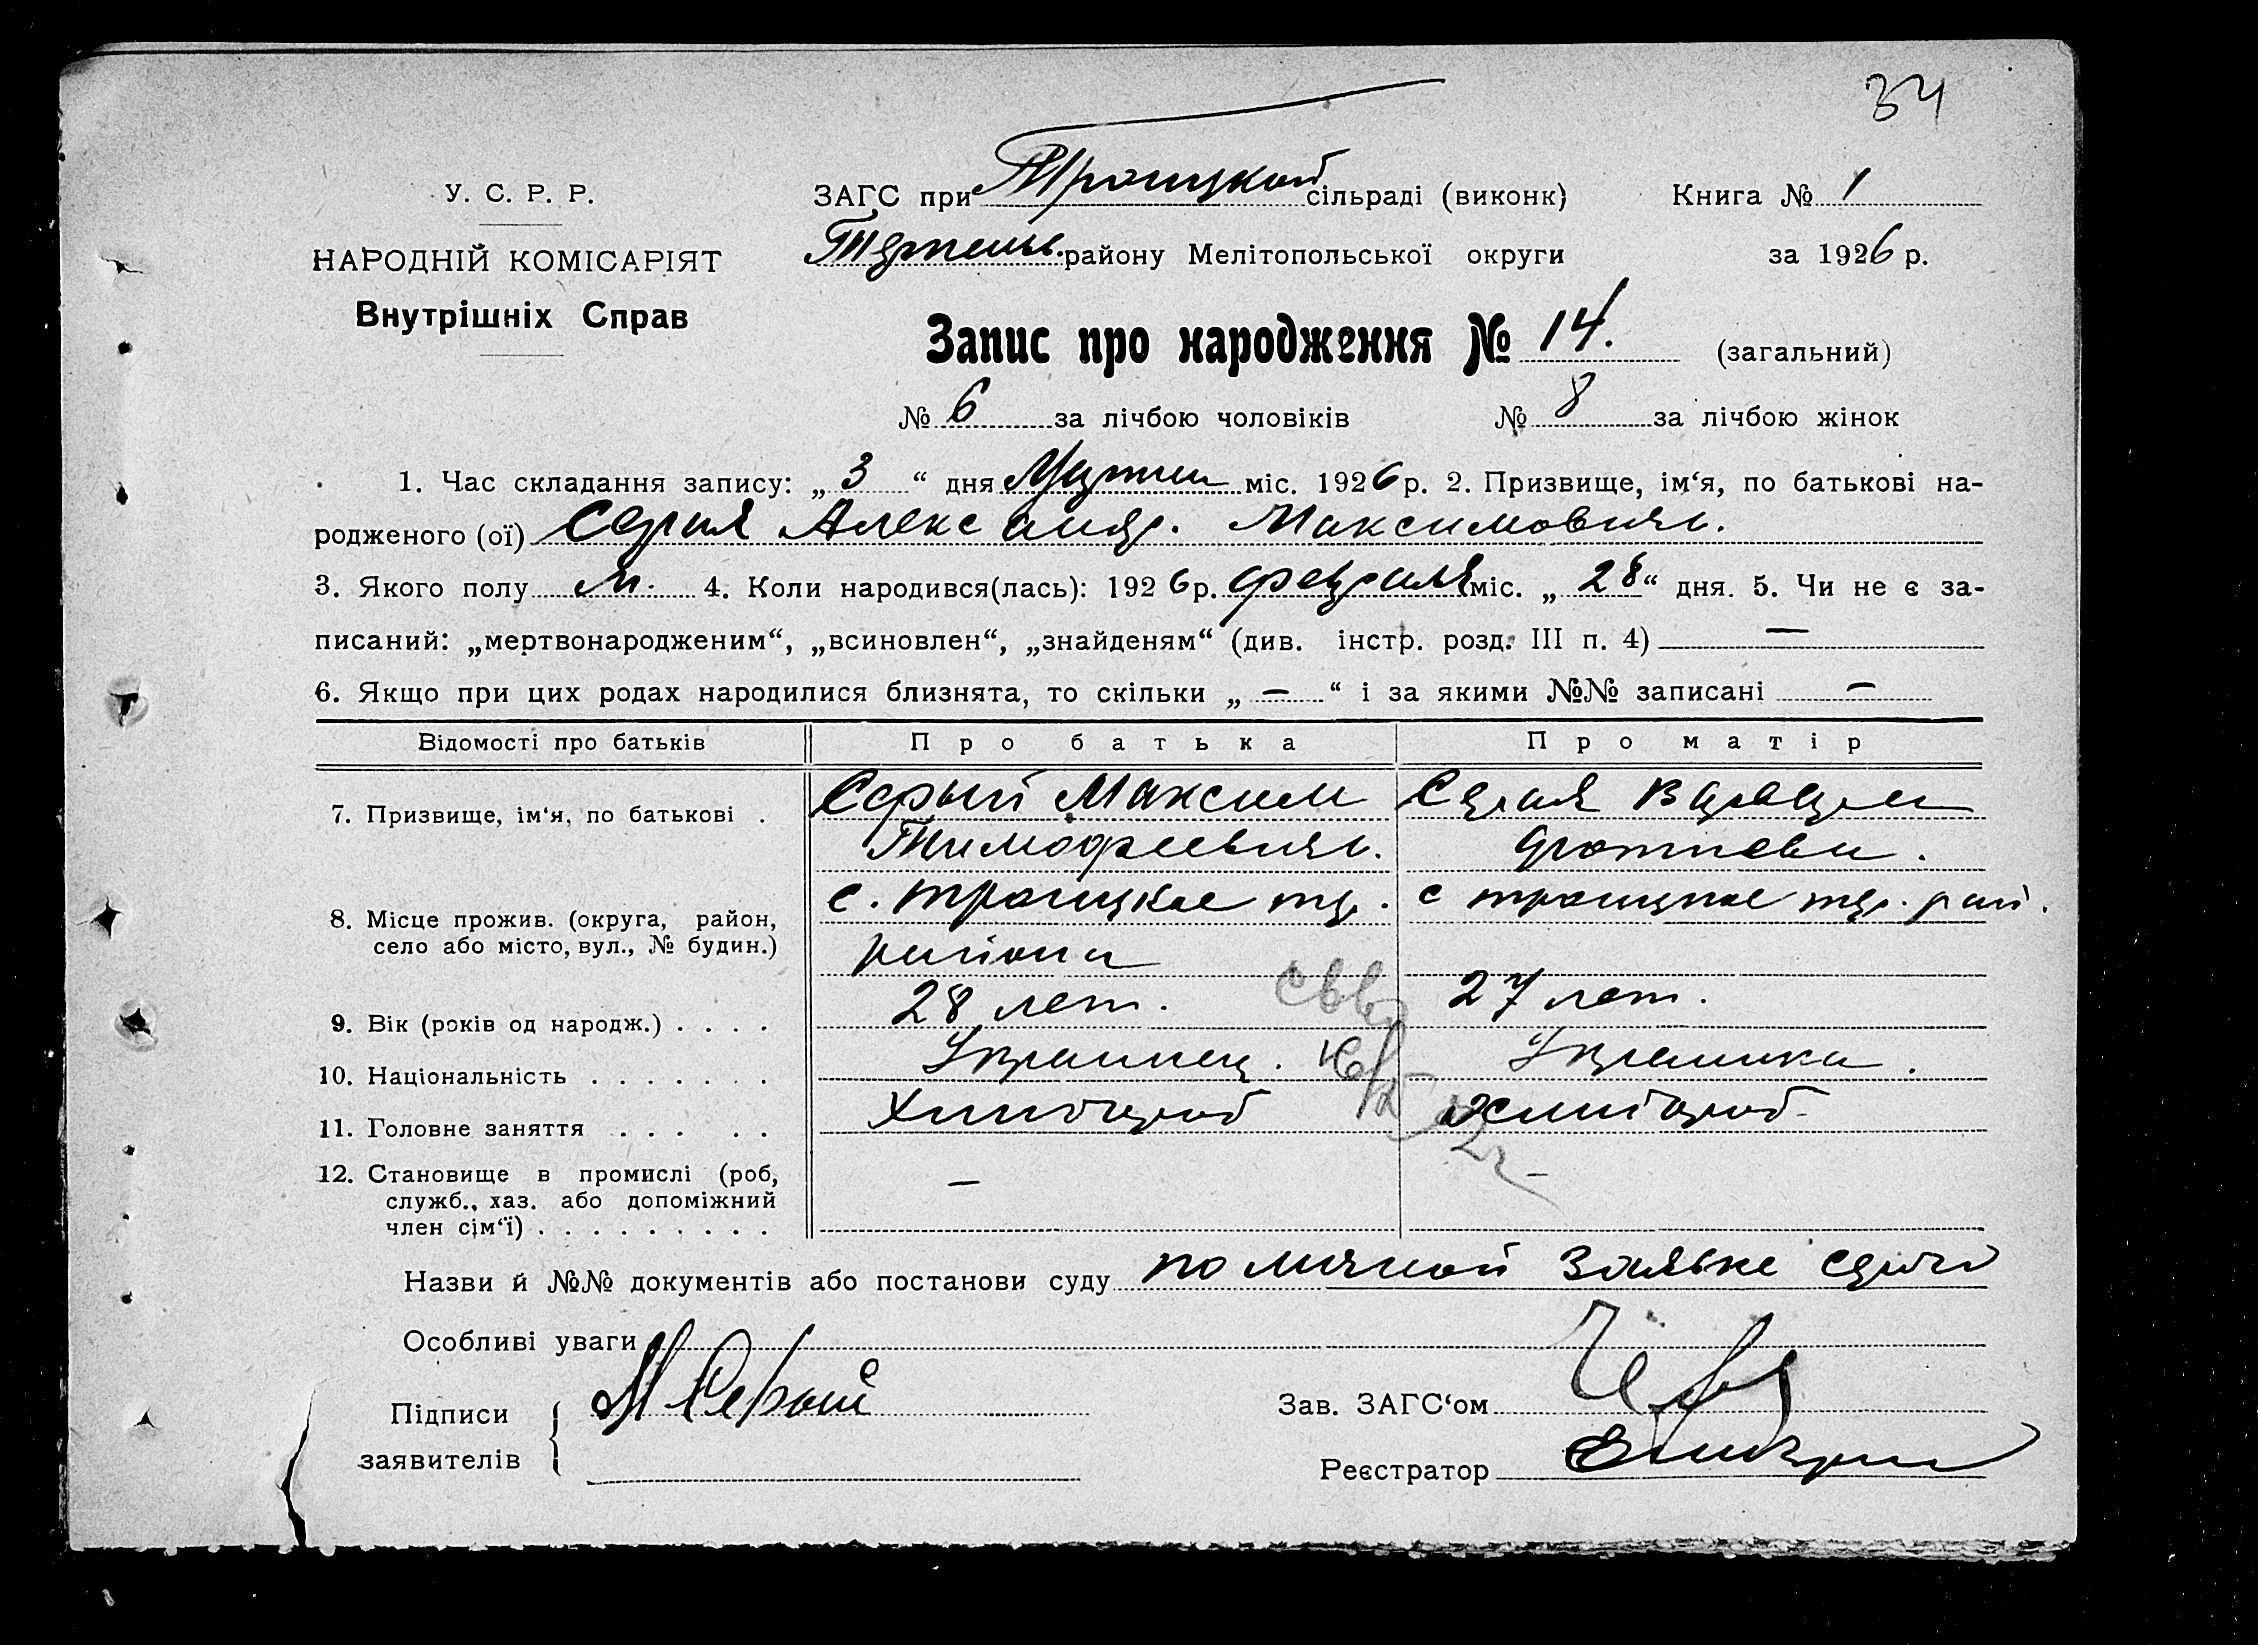 34
У. С. Р. Р.
ЗАГС при Троицкой сільраді (виконк) Книга № 1
НАРОДНІЙ КОМІСАРІЯТ
району Мелітопольської округи за 1926 р.
Внутрішніх Справ
Запис про народження № 14. (загальний)
№ 6 за лічбою чоловіків № 8 за лічбою жінок
1. Час складання запису: „ 3 “ дня Марта міс. 1926 р. 2. Призвище, ім‘я, по батькові на-
родженого (ої) Серия Александр. Максимовичь.
3. Якого полу м. 4. Коли народився(лась): 1926 р. февраля міс. „ 28 “ дня. 5. Чи не є за-
писаний: „мертвонародженим“, „всиновлен“, „знайденям“ (див. інстр. розд. III п. 4) —
6. Якщо при цих родах народилися близнята, то скільки „ — “ і за якими №№ записані —
Відомості про батьків Про батька Про матір
7. Призвище, ім‘я, по батькові . Серый Максим Серая Варвара
Тимофеевичь.
8. Місце прожив. (округа, район, с. троицкое тер. с троицкое тер. рай.
село або місто, вул., № будин.) района
9. Вік (років од народж.) . . . . 28 лет. 27 лет.
10. Національність . . . . . . . Украинец. Украинка.
11. Головне заняття . . . . . Хлибороб хлибороб
12. Становище в промислі (роб, — —
служб., хаз. або допоміжний
член сім‘ї) . . . . . . . . .
Назви й №№ документів або постанови суду по личной заявке
Особливі уваги
Підписи М Серый Зав. ЗАГС‘ом
заявителів Реєстратор